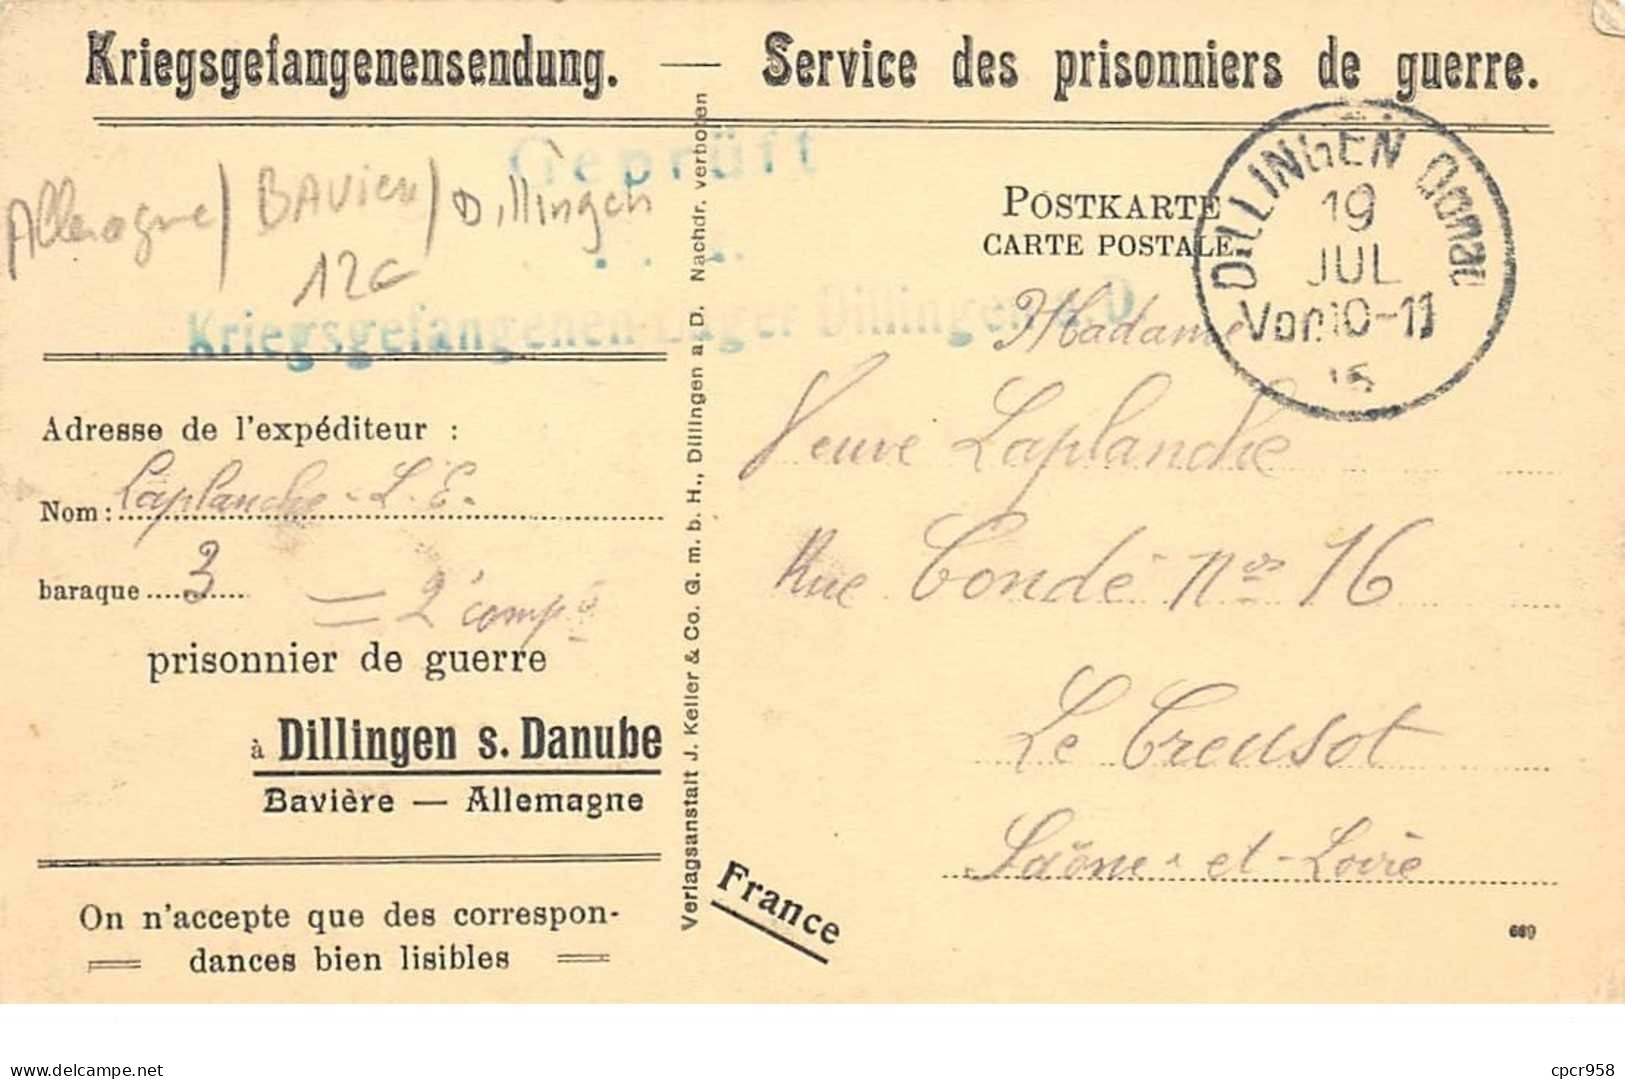 Kriegsgefangenensendung. — Service des prisonniers de guerre.
Geprüft
Allemagne / BAVIERE / Dillingen
12€
Kriegsgefangenen-Lager Dillingen a. D.
POSTKARTE
CARTE POSTALE
DILLINGEN Donau
19
JUL
Vor. 10-11
15
Madame
Veuve Laplanche
Rue Condé Nos 16
Le Creusot
Saône-et-Loire
France
Adresse de l'expéditeur :
Nom: Laplanche - L. E.
baraque 3 = 2e compie
prisonnier de guerre
à Dillingen s. Danube
Bavière — Allemagne
On n'accepte que des correspon-
dances bien lisibles
Verlagsanstalt J. Keller & Co. G. m. b. H., Dillingen a. D. Nachdr. verboten
669
cpcr958